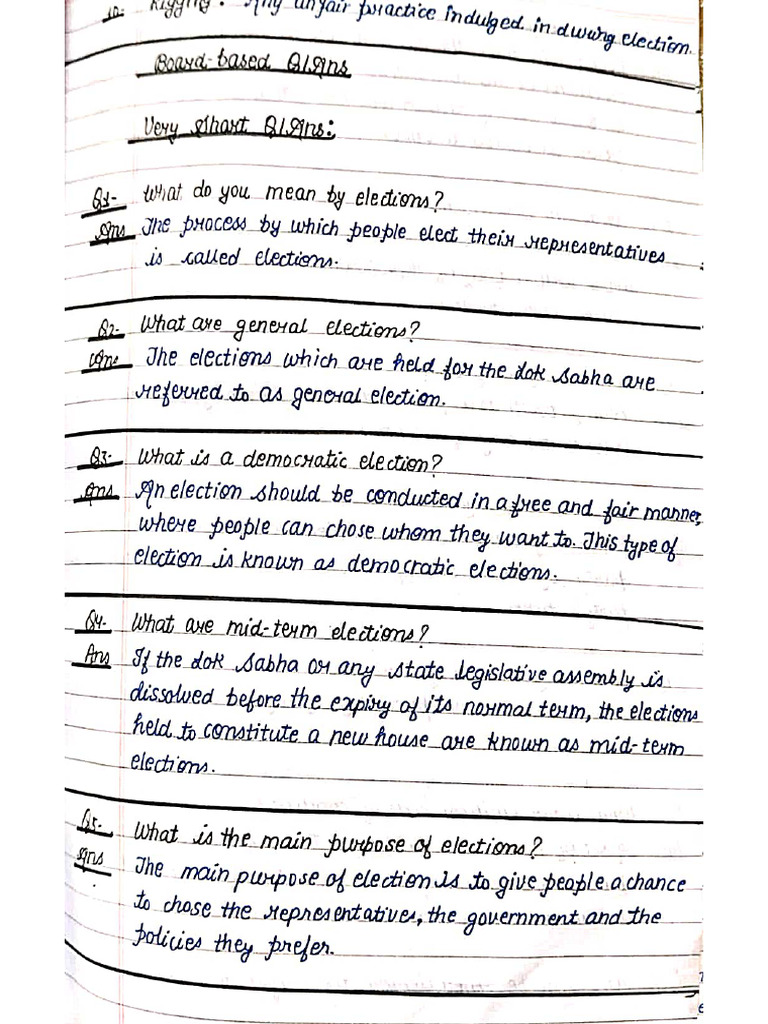 10- Rigging: Any unfair practice indulged in during election.
Board-based Q/Ans
Very Short Q/Ans:
Q1- What do you mean by elections?
Ans The process by which people elect their representatives
is called elections.
Q2- What are general elections?
Ans The elections which are held for the Lok Sabha are
referred to as general election.
Q3- What is a democratic election?
Ans An election should be conducted in a free and fair manner,
where people can chose whom they want to. This type of
election is known as democratic elections.
Q4- What are mid-term elections?
Ans If the Lok Sabha or any state legislative assembly is
dissolved before the expiry of its normal term, the elections
held to constitute a new house are known as mid-term
elections.
Q5- What is the main purpose of elections?
Ans The main purpose of election is to give people a chance
to chose the representatives, the government and the
policies they prefer.